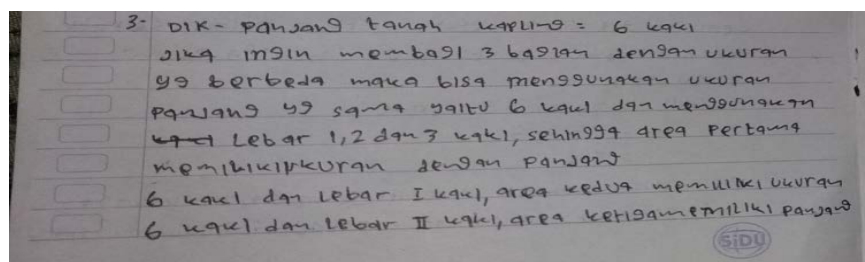 3- DIK - Panjang tanah kapling = 6 kaki
Jika ingin membagi 3 bagian dengan ukuran
yg berbeda maka bisa menggunakan ukuran
panjang yg sama yaitu 6 kaki dan menggunakan
Lebar 1,2 dan 3 kaki, sehingga area Pertama
memiliki ukuran dengan panjang
6 kaki dan Lebar I kaki, area kedua memiliki ukuran
6 kaki dan Lebar II kaki, area ketiga memiliki panjang
SiDU